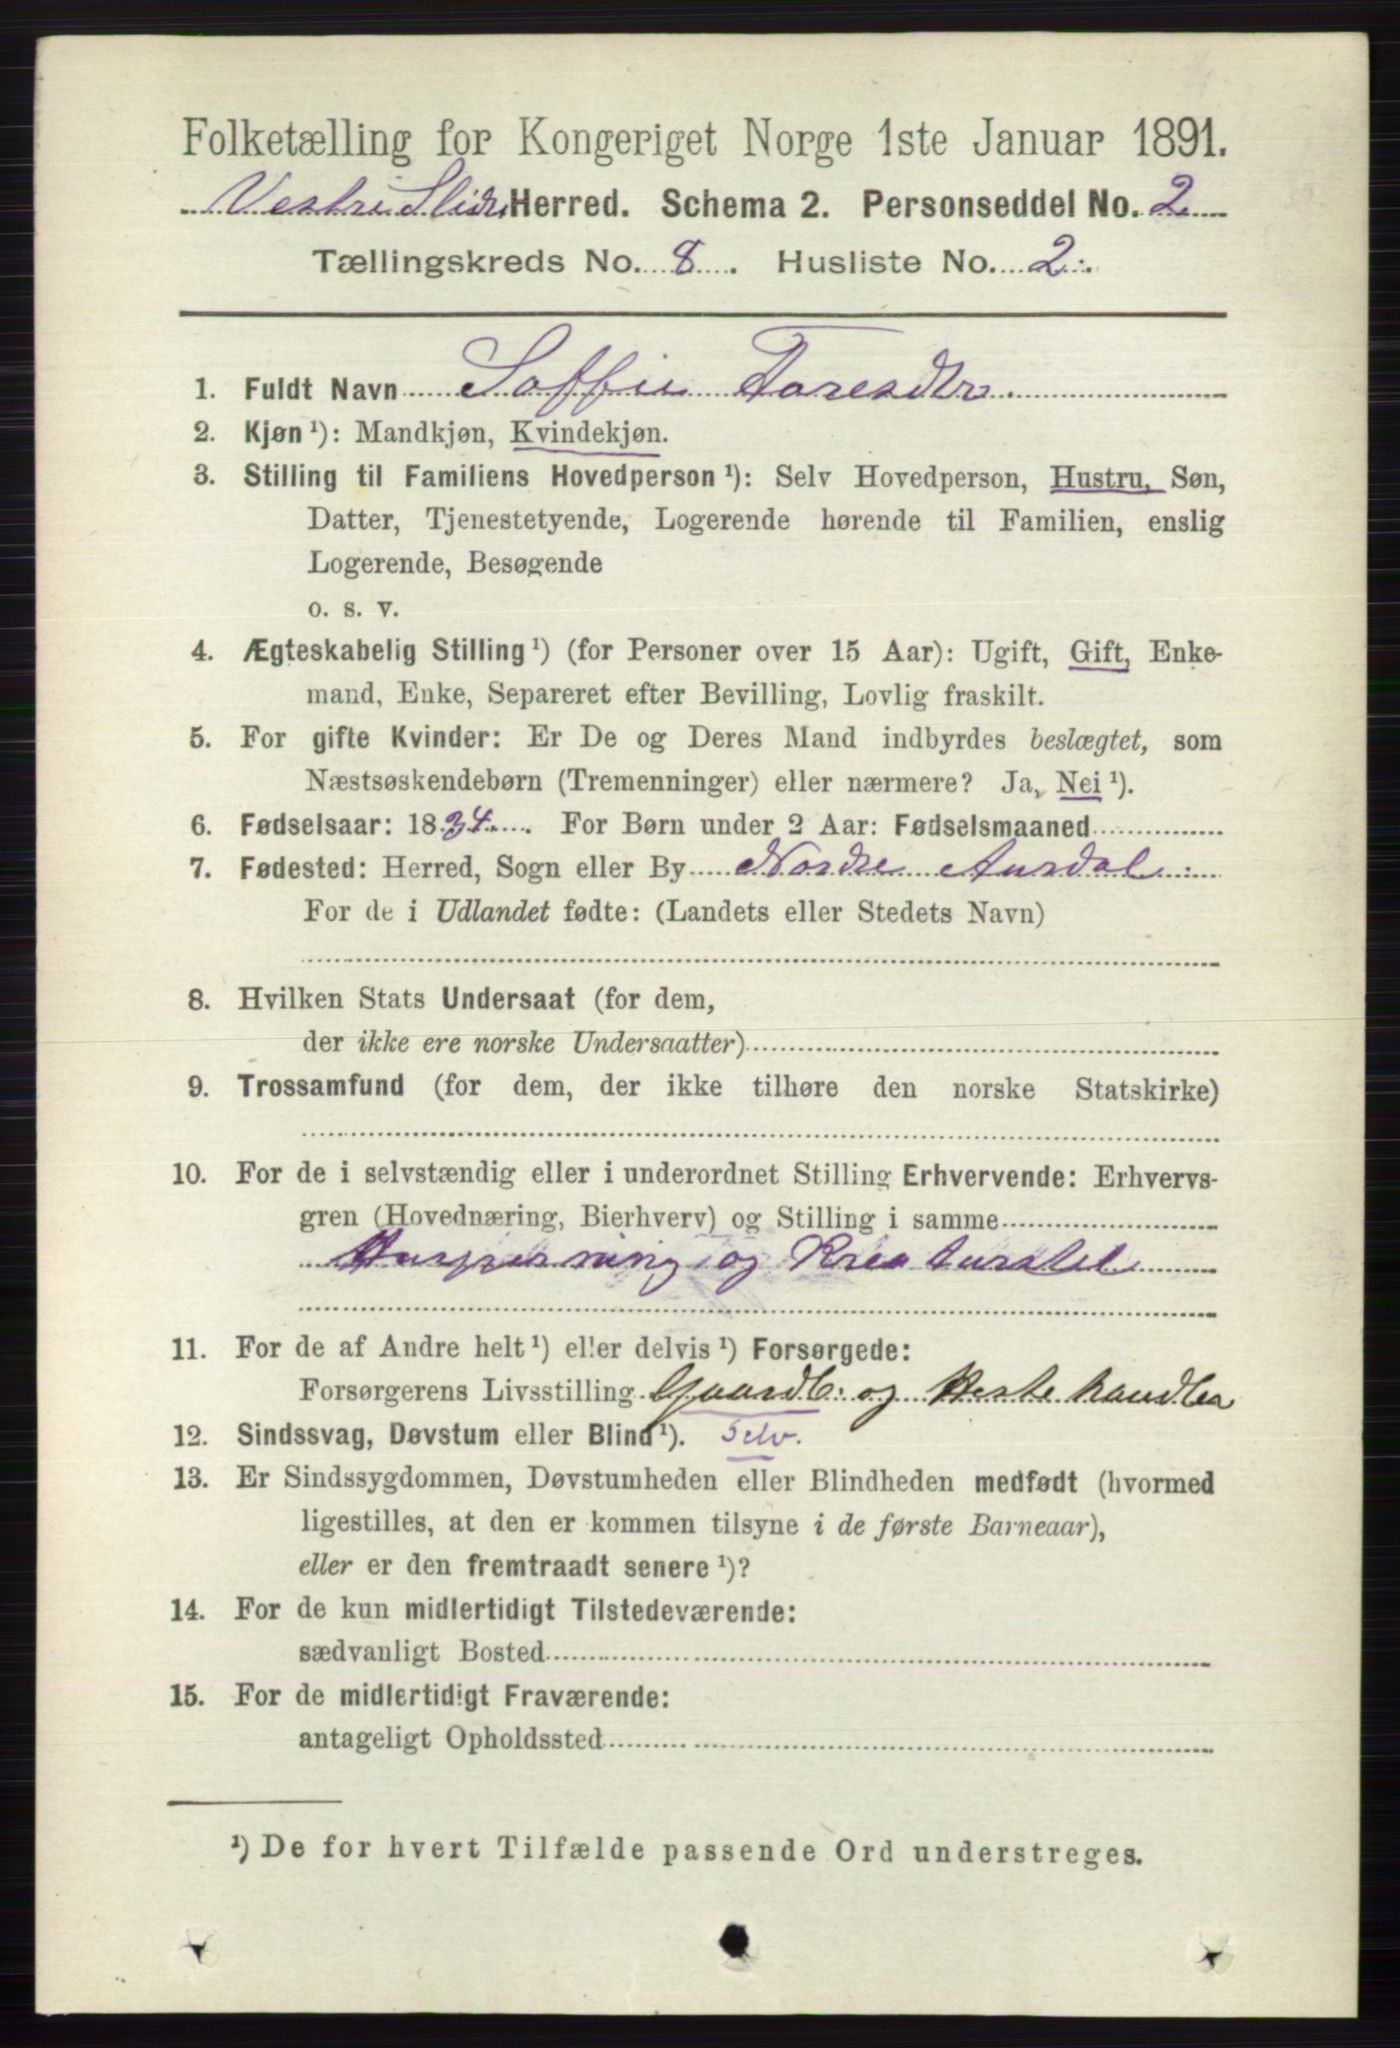 Folketælling for Kongeriget Norge 1ste Januar 1891.
Vestre Slidre Herred. Schema 2. Personseddel No. 2
Tællingskreds No. 8. Husliste No. 2.
1. Fuldt Navn Soffie Toresdtr.
2. Kjøn ¹): Mandkjøn, Kvindekjøn.
3. Stilling til Familiens Hovedperson ¹): Selv Hovedperson, Hustru, Søn,
Datter, Tjenestetyende, Logerende hørende til Familien, enslig
Logerende, Besøgende
o. s. v.
4. Ægteskabelig Stilling ¹) (for Personer over 15 Aar): Ugift, Gift, Enke-
mand, Enke, Separeret efter Bevilling, Lovlig fraskilt.
5. For gifte Kvinder: Er De og Deres Mand indbyrdes beslægtet, som
Næstsøskendebørn (Tremenninger) eller nærmere? Ja, Nei ¹).
6. Fødselsaar: 1834. For Børn under 2 Aar: Fødselsmaaned
7. Fødested: Herred, Sogn eller By Nordre Aurdal
For de i Udlandet fødte: (Landets eller Stedets Navn)
8. Hvilken Stats Undersaat (for dem,
der ikke ere norske Undersaatter)
9. Trossamfund (for dem, der ikke tilhøre den norske Statskirke)
10. For de i selvstændig eller i underordnet Stilling Erhvervende: Erhvervs-
gren (Hovednæring, Bierhverv) og Stilling i samme
og Kreaturstel
11. For de af Andre helt ¹) eller delvis ¹) Forsørgede:
Forsørgerens Livsstilling Gaardb. og Hestehandler
12. Sindssvag, Døvstum eller Blind ¹). Selv.
13. Er Sindssygdommen, Døvstumheden eller Blindheden medfødt (hvormed
ligestilles, at den er kommen tilsyne i de første Barneaar),
eller er den fremtraadt senere ¹)?
14. For de kun midlertidigt Tilstedeværende:
sædvanligt Bosted
15. For de midlertidigt Fraværende:
antageligt Opholdssted
¹) De for hvert Tilfælde passende Ord understreges.